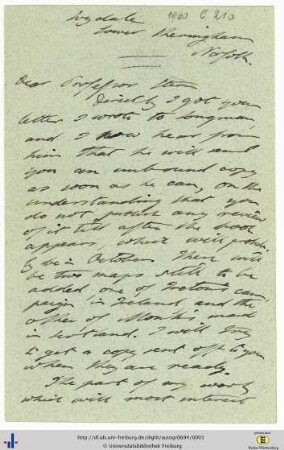 Lower Sheringham
Norfolk.
Dear Professor Stern
Directly I got your
letter I wrote to Longman
and I now hear from
him that he will send
you an unbound copy
as soon as he can, on the
understanding that you
do not publish any review
of it till after the book
appears, which will prob
ly be in October. There will
be two maps still to be
added, one of Ireton's cam
paign in Ireland and the
other of Monk's march
in Scotland. I will try
to get a copy sent off to you
when they are ready.
The part of my work
which will most interest
http://dl.ub.uni-freiburg.de/diglit/autogr0094/0001
© Universitätsbibliothek Freiburg